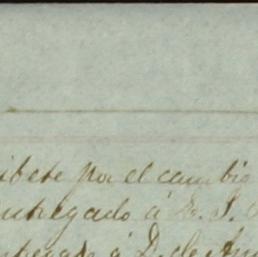 ibete por el cambio
entregado á D. J.
entregado á D. de An